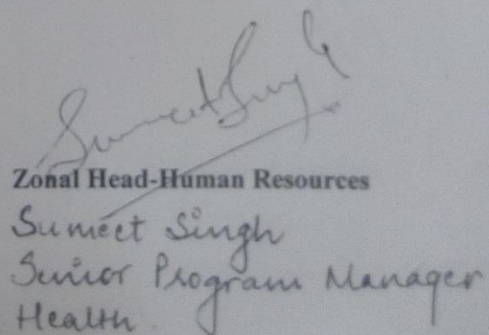 Sumeet Singh
Zonal Head-Human Resources
Sumeet Singh
Senior Program Manager
Health